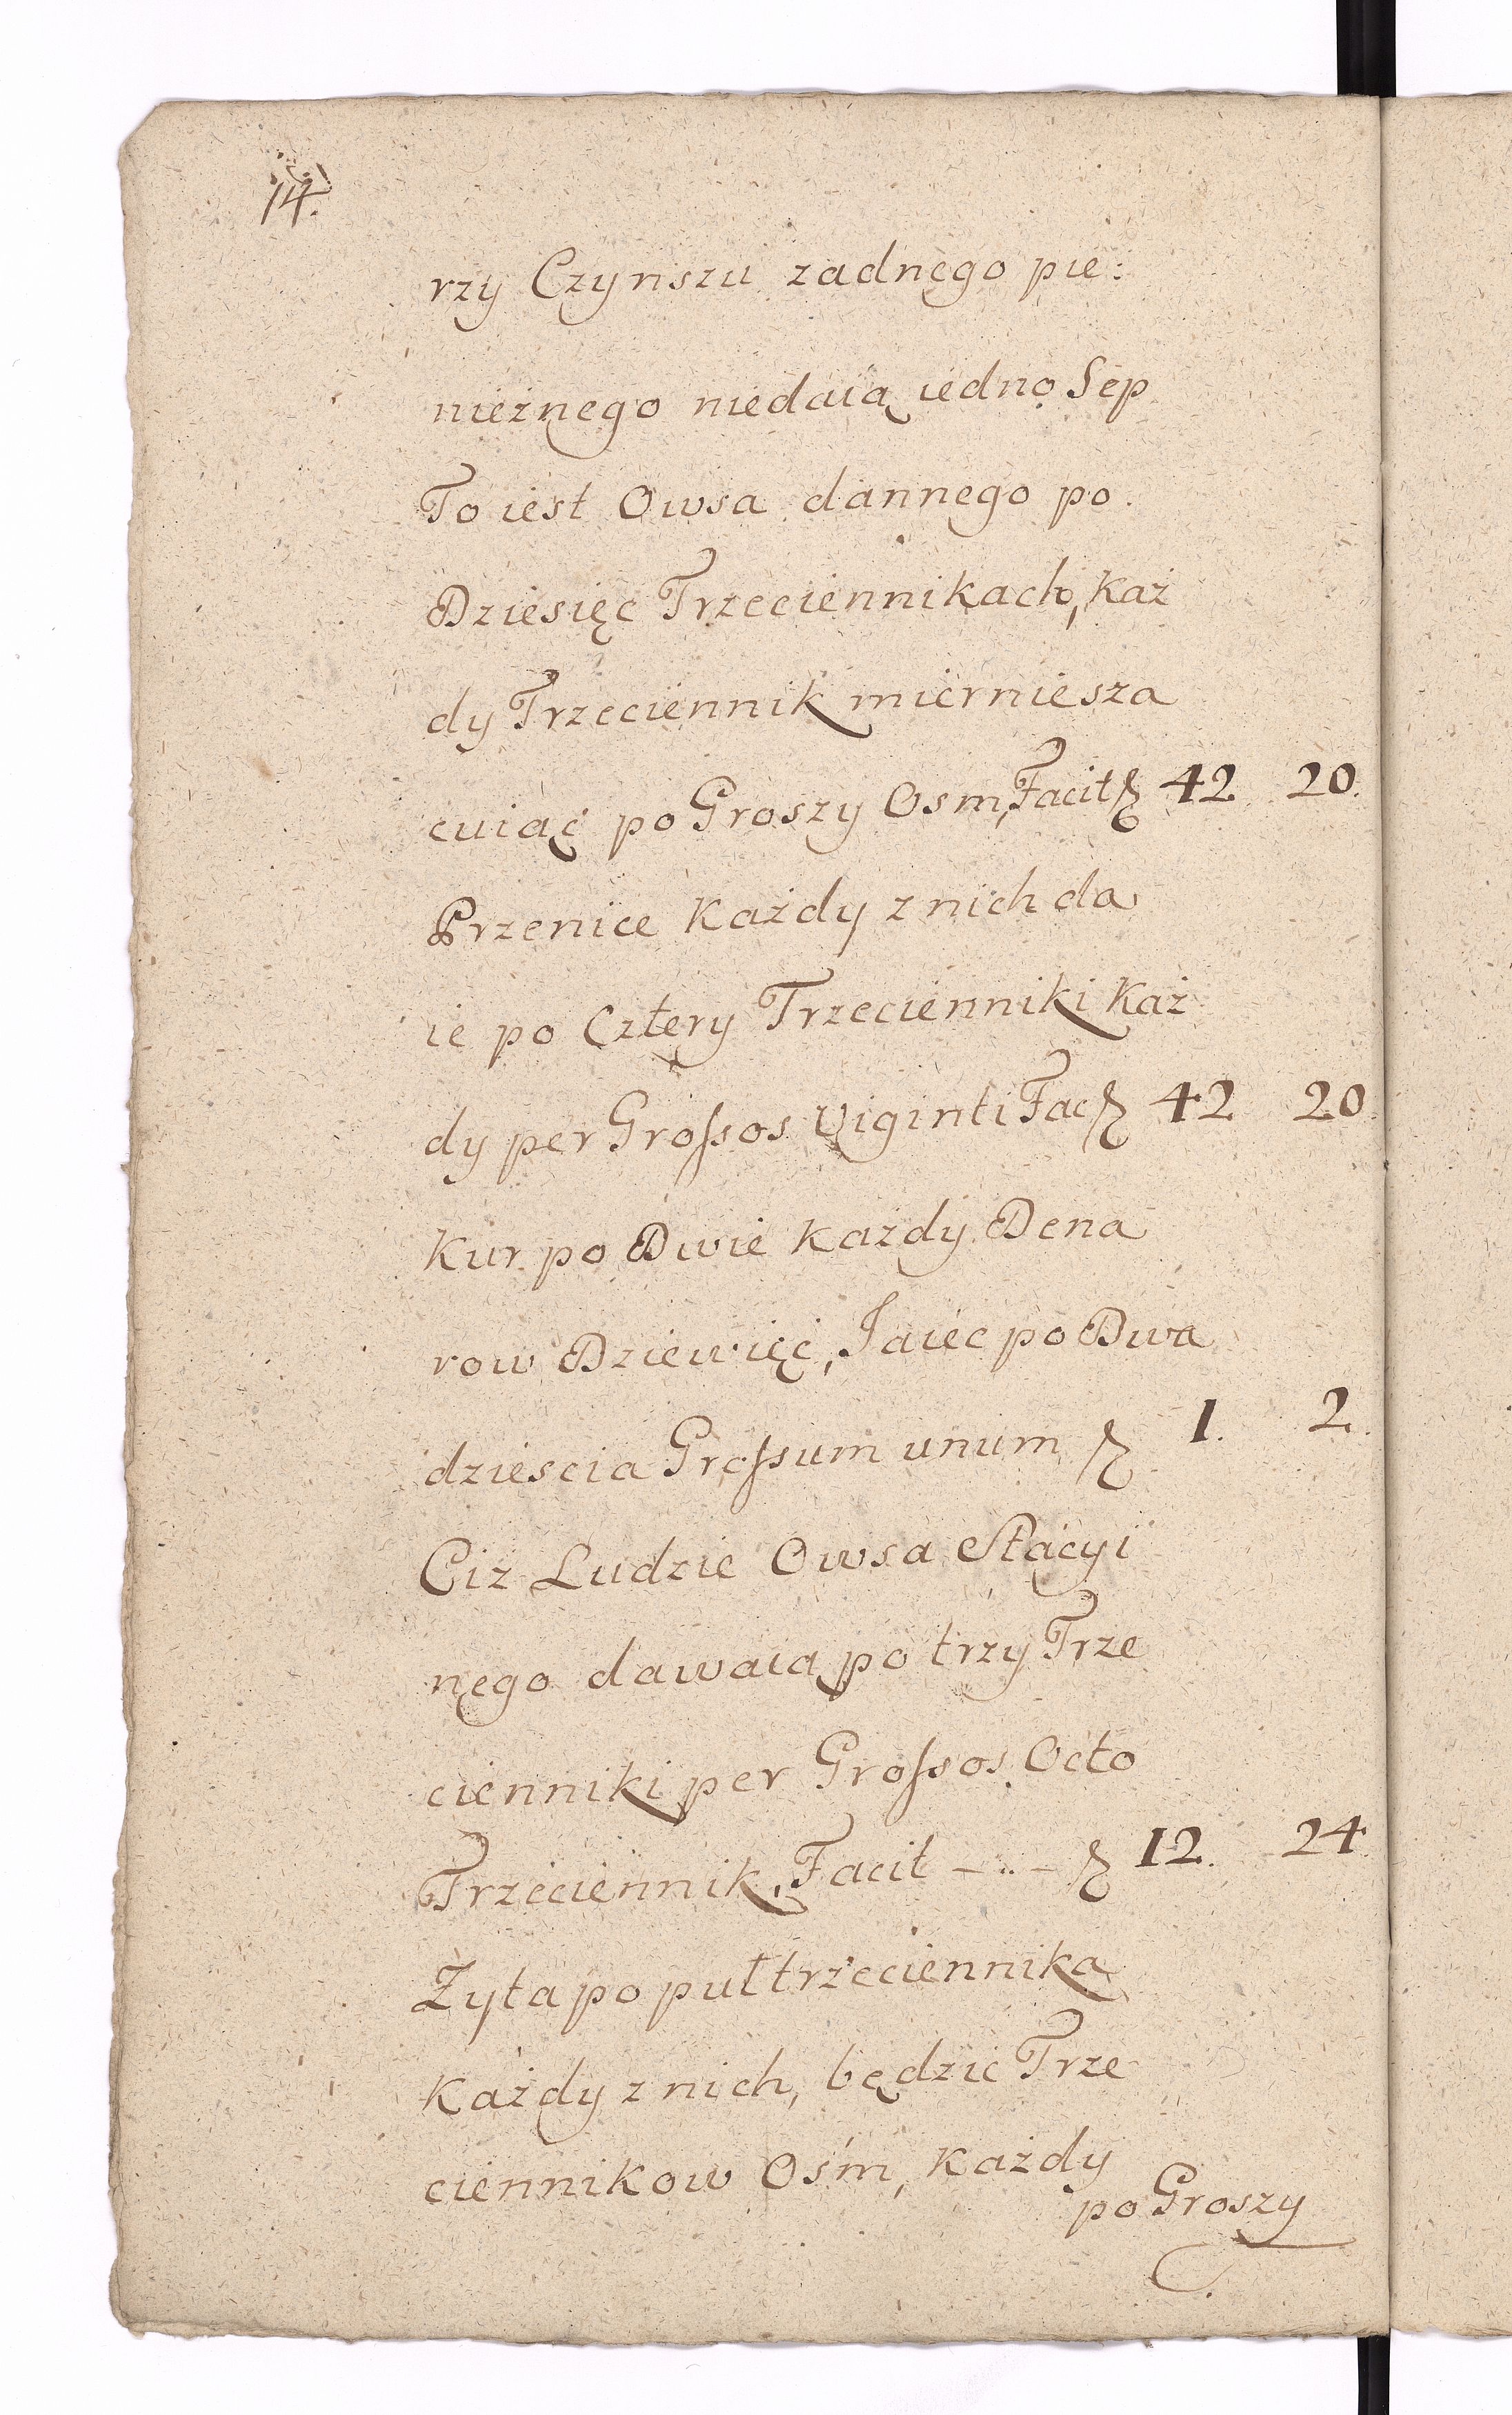 14.
rzy Czynszu zadnego pie:
nieżnego niedaią iedno Sep
To iest Owsa dannego po
Dziesięc Trzeciennikach, Każ
dy Trzeciennik miernie sza
cuiąć po Groszy Osm, Facit 42 20.
Przenice Każdy z nich da
ie po Cztery Trzecienniki Każ
dy per Grossos Viginti Fac 42 20.
Kur po Dwie Każdy Dena
row Dziewięć, Jaiec po Dwa
dziescia Grossum unum 1. 2.
Ciż Ludzie Owsa Stacyi
nego dawaią po trzy Trze
cienniki per Grossos Octo
Trzeciennik, Facit - .. - 12. 24.
Zyta po puł trzeciennika
Każdy z nich, będzie Trze
ciennikow Ośm, Każdy
po Groszy